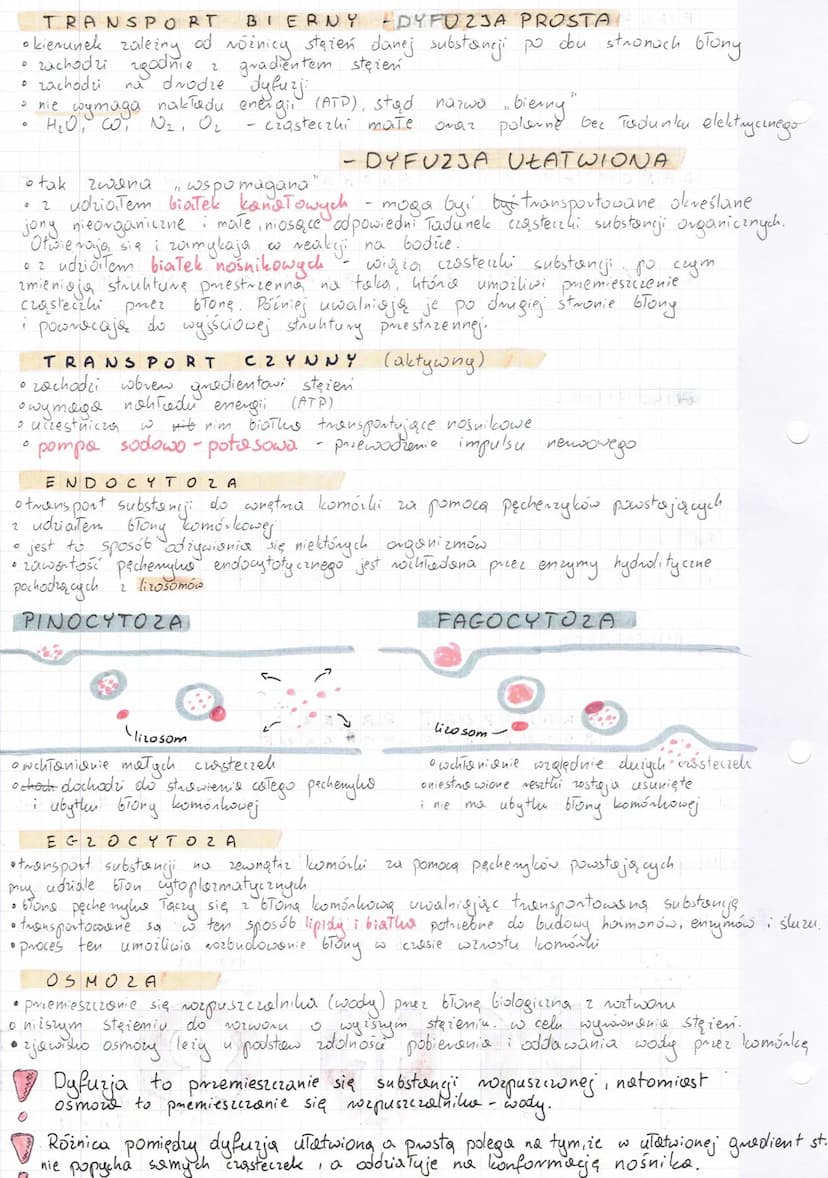 TRANSPORT BIERNY - DYFUZJA PROSTA
• kierunek zależny od różnicy stężeń danej substancji po obu stronach błony
• zachodzi zgodnie z gradientem stężeń
• zachodzi na drodze dyfuzji
• nie wymaga nakładu energii (ATP), stąd nazwa "bierny"
• H2O, CO, N2, O2 - cząsteczki małe oraz polarne bez ładunku elektrycznego
- DYFUZJA UŁATWIONA
• tak zwana "wspomagana"
• z udziałem białek kanałowych - mogą być transportowane określane
jony nieorganiczne i małe, niosące odpowiedni ładunek cząsteczki substancji organicznych.
Otwierają się i zamykają w reakcji na bodźce.
• z udziałem białek nośnikowych - wiążą cząsteczki substancji, po czym
zmieniają strukturę przestrzenną na taką, która umożliwi przemieszczenie
cząsteczki przez błonę. Później uwalniają je po drugiej stronie błony
i powracają do wyjściowej struktury przestrzennej.
TRANSPORT CZYNNY (aktywny)
• zachodzi wbrew gradientowi stężeń
• wymaga nakładu energii (ATP)
• uczestniczą w nim białka transportujące nośnikowe
• pompa sodowo-potasowa - przewodzenie impulsu nerwowego
ENDOCYTOZA
• transport substancji do wnętrza komórki za pomocą pęcherzyków powstających
z udziałem błony komórkowej
• jest to sposób odżywiania się niektórych organizmów
• zawartość pęcherzyka endocytotycznego jest rozkładana przez enzymy hydrolityczne
pochodzących z lizosomów
PINOCYTOZA
lizosom
• wchłanianie małych cząsteczek
• dochodzi do strawienia całego pęcherzyka
i ubytku błony komórkowej
FAGOCYTOZA
lizosom
• wchłanianie względnie dużych cząsteczek
• niestrawione resztki zostają usunięte
i nie ma ubytku błony komórkowej
EGZOCYTOZA
• transport substancji na zewnątrz komórki za pomocą pęcherzyków powstających
przy udziale błon cytoplazmatycznych
• błona pęcherzyka łączy się z błoną komórkową uwalniając transportowaną substancję
• transportowane są w ten sposób lipidy i białka potrzebne do budowy hormonów, enzymów i śluzu.
• proces ten umożliwia rozbudowanie błony w czasie wzrostu komórki
OSMOZA
• przemieszczanie się rozpuszczalnika (wody) przez błonę biologiczną z roztworu
o niższym stężeniu do rozworu o wyższym stężeniu. w celu wyrównania stężeń.
• zjawisko osmozy leży u podstaw zdolność pobierania i oddawania wody przez komórkę
Dyfuzja to przemieszczanie się substancji rozpuszczonej, natomiast
osmoza to przemieszczanie się rozpuszczalnika - wody.
Różnica pomiędzy dyfuzją ułatwioną a prostą polega na tym, że w ułatwionej gradient st.
nie popycha samych cząsteczek, a oddziałuje na konformację nośnika.